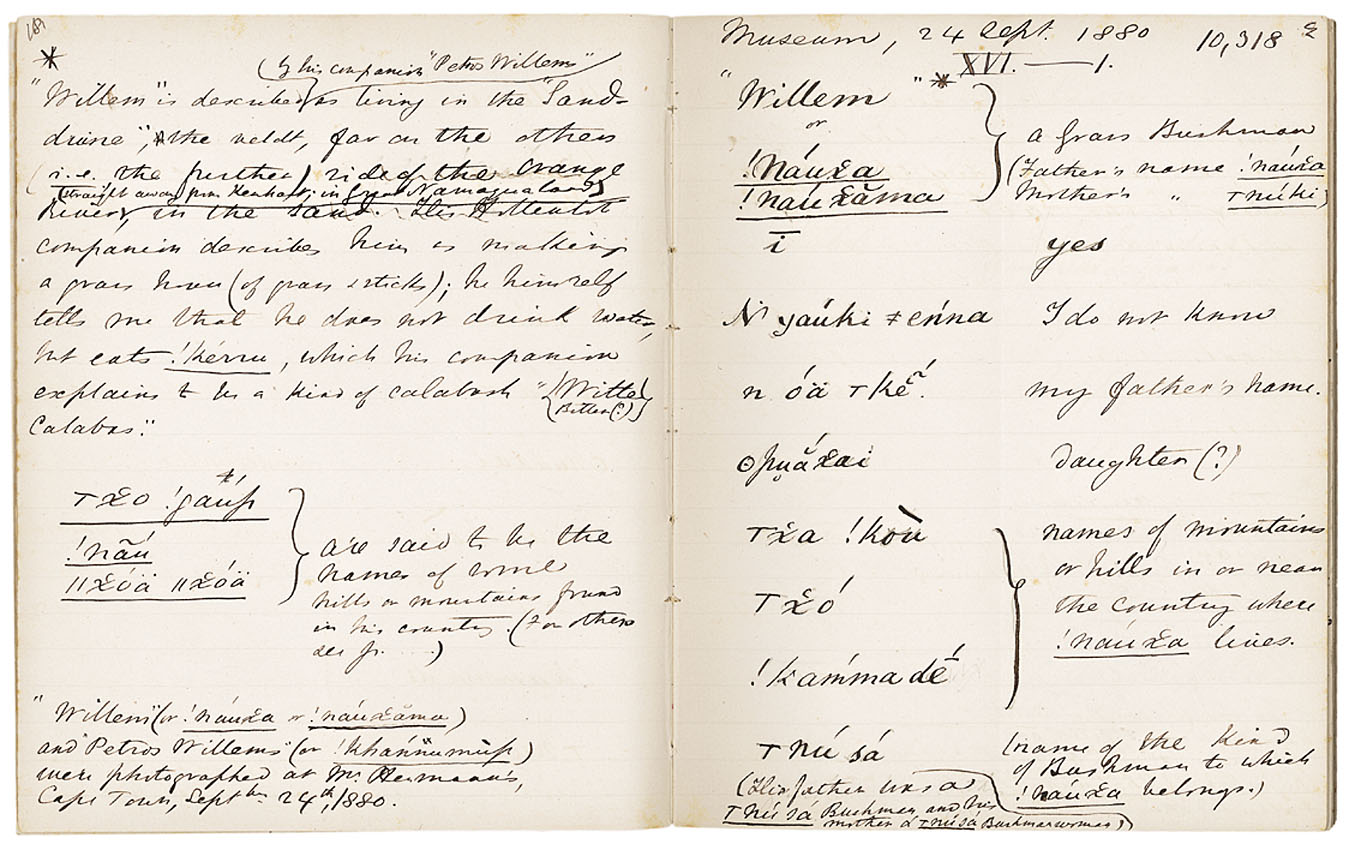 *
(by his companion "Petros Willems")
"Willem" is described as living in the "Sand-
duine", the veldt, far on the other
(i.e. the further) side of the Orange
(straight away from Kenhart; in Great Namaqualand)
River, in the sand. His Hottentot
companion describes him as making
a grass house (of grass & sticks); he himself
tells me that he does not drink water,
but eats !kérru, which his companion
explains to be a kind of calabash "(Witte)
Bitter (?)
Calabas."
*
ꞇx̌o !gaúp
!nãú
ǁx̌óä ǁx̌óä
are said to be the
names of some
hills or mountains found
in his country. (For others
see p. )
"Willem" (or !náux̌a or !náux̌ăma)
and "Petros Willems" (or !khánnumùp)
were photographed at Mr. Hermann's,
Cape Town, Septbr. 24th, 1880.
Museum, 24 Sept. 1880 10,318
XVI. — 1.
"Willem" *
or
!Náux̌a
!náux̌ăma
a Grass Bushman
(Father's name !náux̌a
Mother's " ꞇnúki)
ī yes
N' yaúki ǂénna I do not know
n óä ꞇkẽ́. my father's name.
ʘpụắx̌ai daughter (?)
ꞇx̌a !kòù
ꞇx̌ó
!kámmadḗ
names of mountains
or hills in or near
the country where
!náux̌a lives.
ꞇnú sá (name of the kind
of Bushman to which
!náux̌a belongs.)
(His father was a
ꞇnú sá Bushman and his
mother a ꞇnúsá Bushmanwoman)